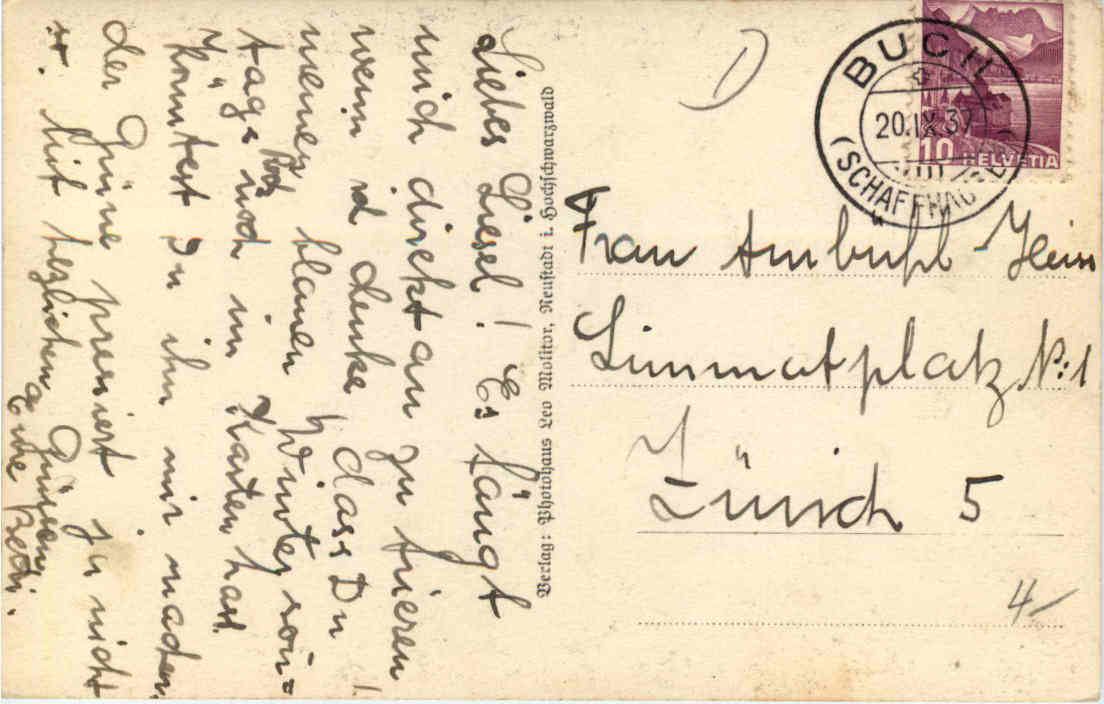 Liebes Liesel! Es fängt
mich direkt an zu frieren
wenn ich denke dass Du
meinen blauen Winterson=
tags Rock noch im Kasten hast.
Könntest Du ihn mir machen,
der Grüne pressiert ja nicht
Mit herzlichen Grüssen
Verlag: Photohaus Leo Molitor, Neustadt i. Hochschwarzwald
BUCH
20.IX.37
(SCHAFFHAUSEN)
10 HELVETIA
Frau Ambühl
Limmatplatz N:1
Zürich 5
4